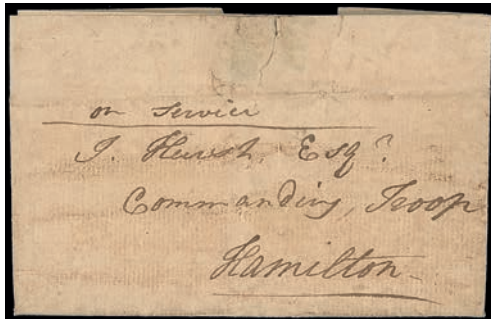 on Service
J. Hursh, Esqr.
Commanding, Troop
Hamilton